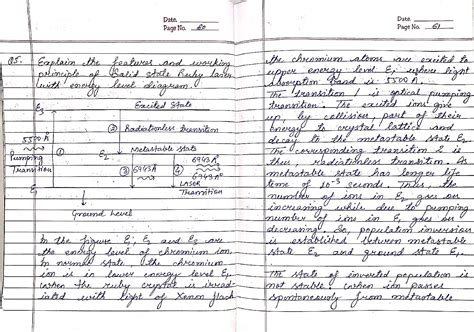 Date
Page No. 60
Q5. Explain the features and working
principle of Solid state Ruby laser
with energy level diagram.
E3 Excited State
② Radiationless transition
5500 A°
Metastable State
Pumping
Transition
① E2
③ 6943A° ④ 6943A°
6943A°
LASER
Transition
E1
Ground Level
In the figure E1, E2 and E3 are
the energy level of chromium ion.
In normal state, the chromium
ion is in lower energy level E1.
When the ruby crystal is irrad-
iated with light of Xenon flash
Date
Page No. 61
the chromium atoms are excited to
upper energy level E3 where light
absorption band is 5500 A°.
The transition 1 is optical pumping
transition. The excited ions give
up, by collision, part of their
energy to crystal lattice and
decay to the metastable state E2.
The corresponding transition 2 is
then, radiationless transition. As
metastable state has longer life
time of 10⁻³ seconds. Thus, the
number of ions in E2 goes on
increasing while due to pumping
number of ions in E1 goes on
decreasing. So, population inversion
is established between metastable
state E2 and ground state E1.
The state of inverted population is
not stable when ion passes
spontaneously from metastable